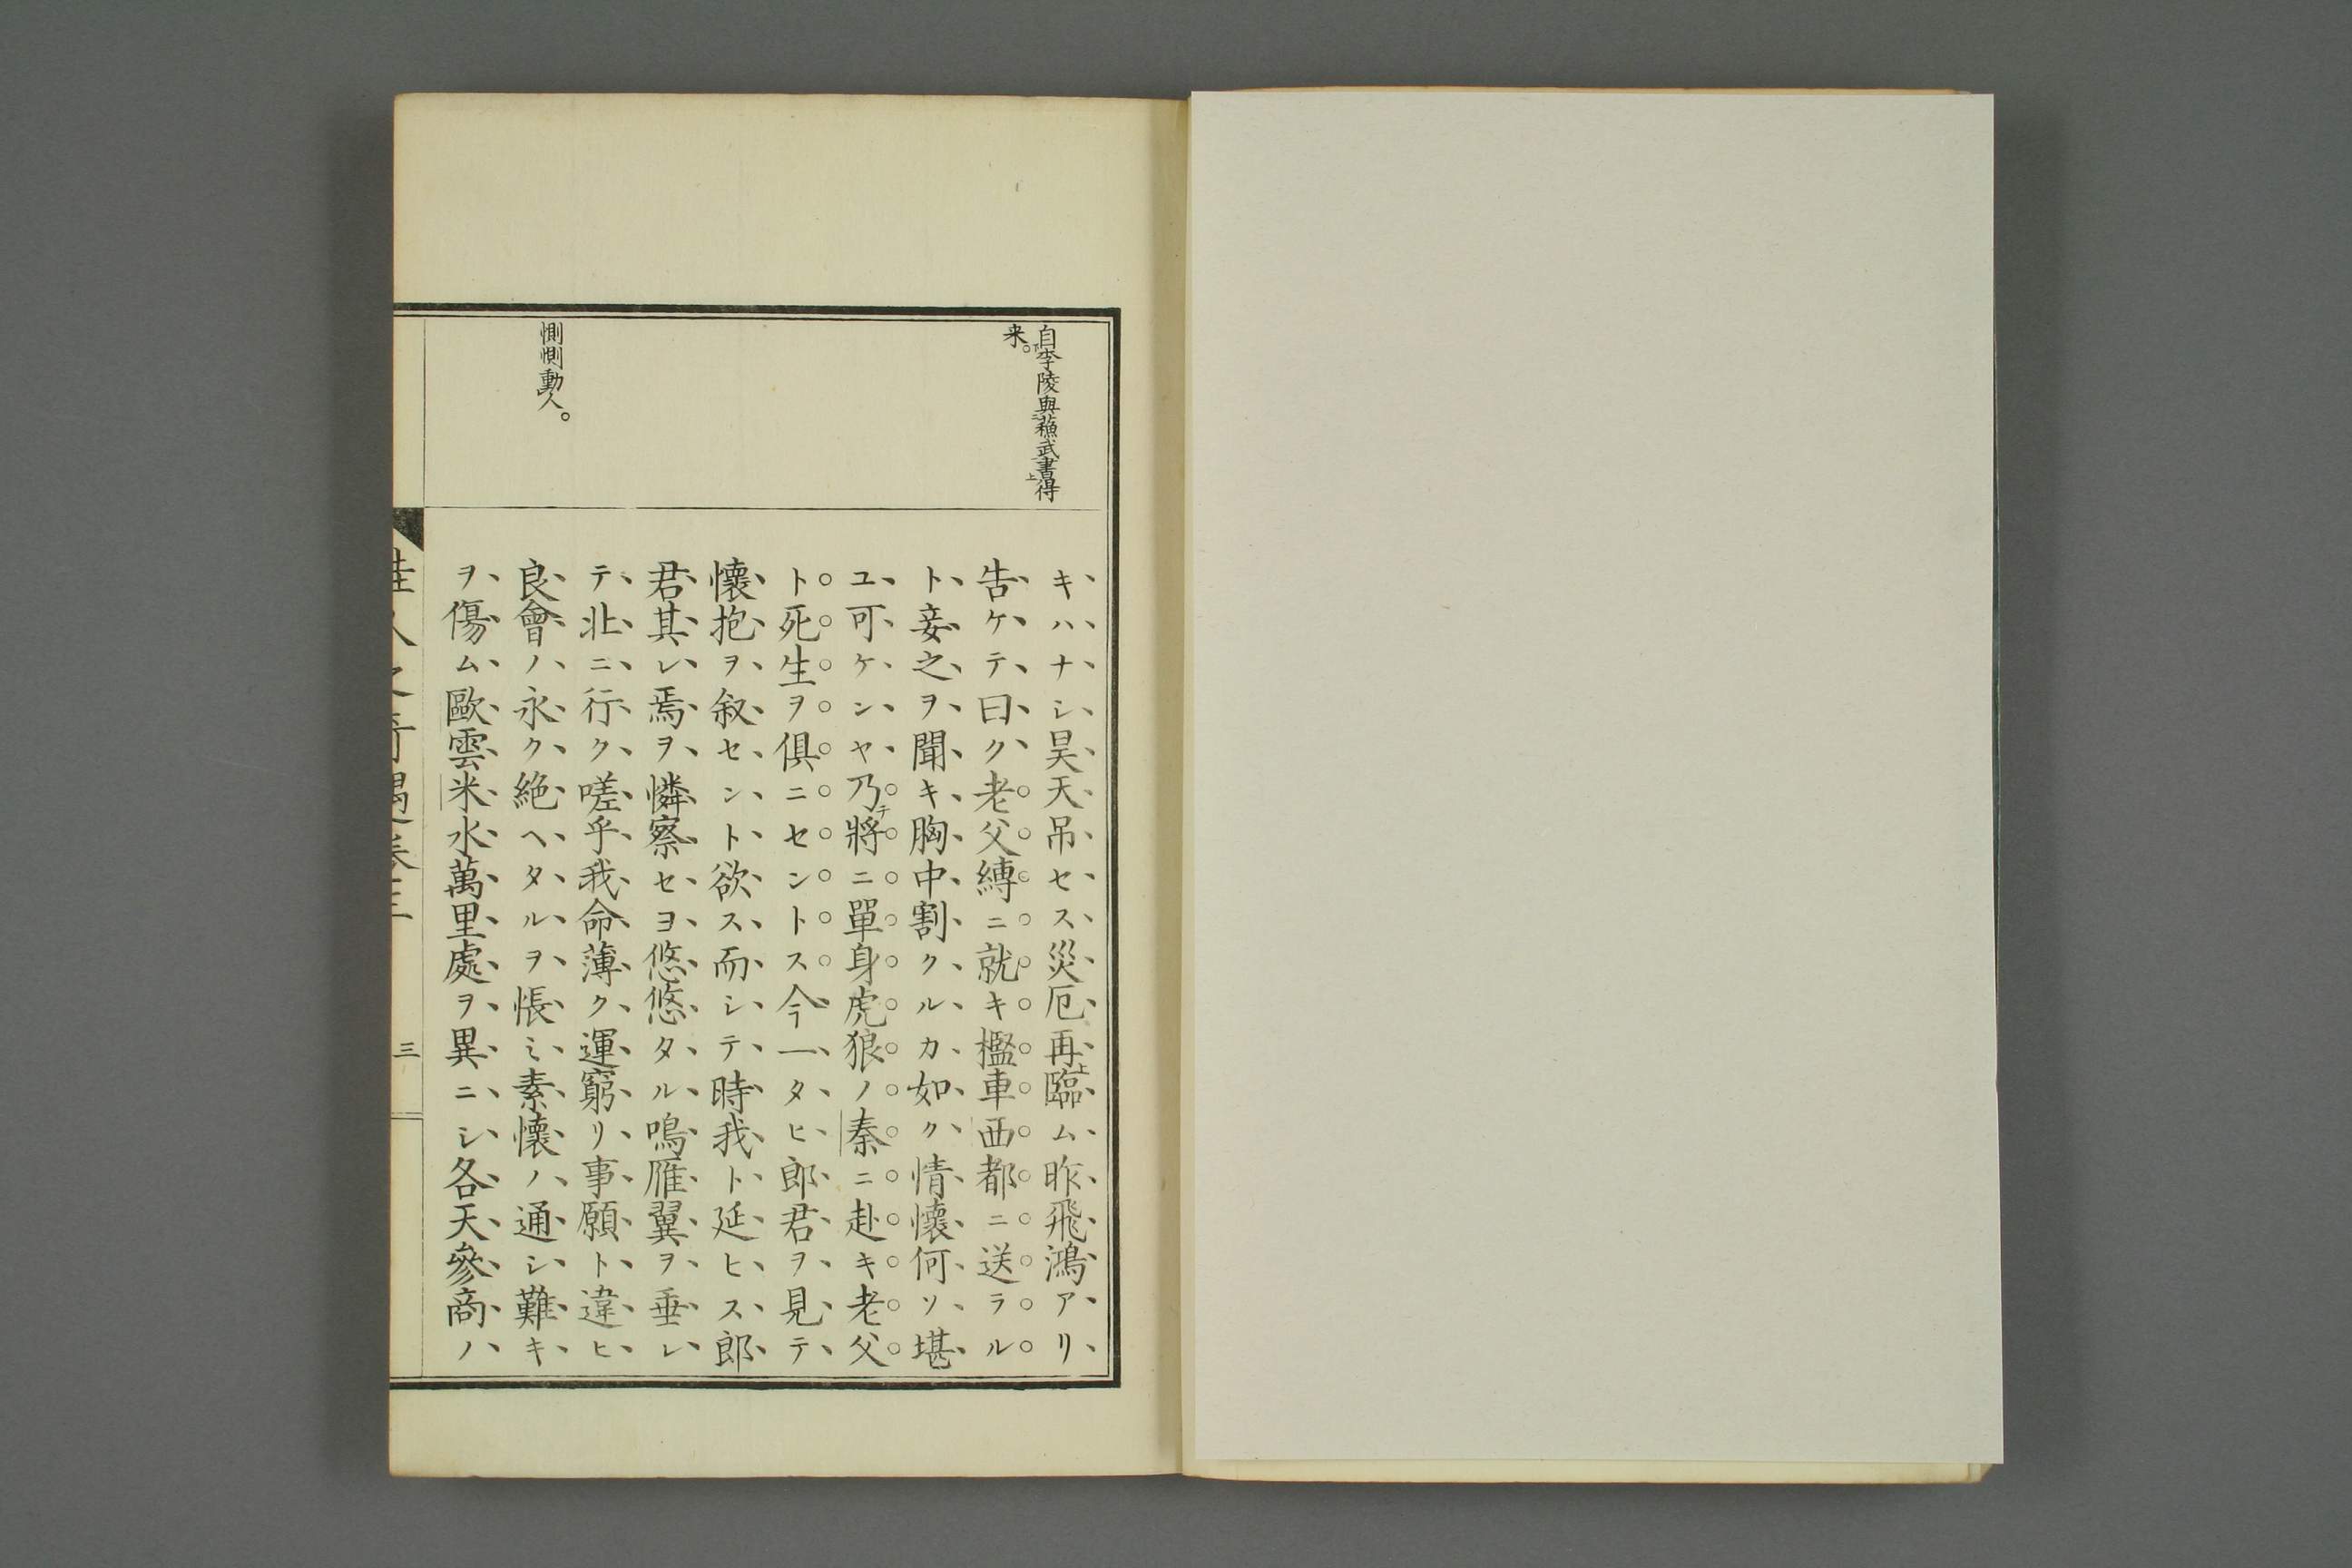 自李陵與蘓武書得
来。
惻惻動人。
キハナシ昊天吊セス災厄再臨ム昨飛鴻アリ
告ケテ曰ク老父縛ニ就キ檻車西都ニ送ラル
ト妾之ヲ聞キ胸中割クルカ如ク情懷何ソ堪
ユ可ケンヤ乃チ將ニ單身虎狼ノ秦ニ赴キ老父
ト死生ヲ俱ニセントス今一タヒ郎君ヲ見テ
懷抱ヲ叙セント欲ス而シテ時我ト延ヒス郎
君其レ焉ヲ憐察セヨ悠悠タル鳴雁翼ヲ垂レ
テ北ニ行ク嗟乎我命薄ク運窮リ事願ト違ヒ
良會ノ永ク絶ヘタルヲ悵ミ素懷ノ通シ難キ
ヲ傷ム歐雲米水萬里處ヲ異ニシ各天參商ノ
佳人之奇遇卷三
三